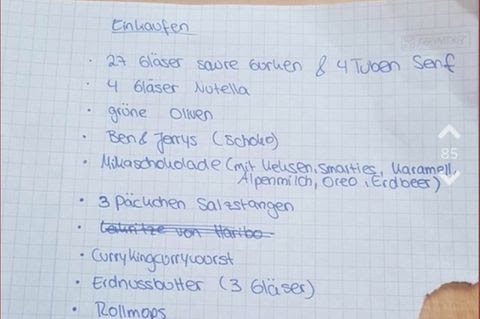 Einkaufen
• 27 Gläser saure Gurken & 4 Tuben Senf
• 4 Gläser Nutella
• grüne Oliven
• Ben & Jerrys (Schoko)
• Milkaschokolade (mit Keksen, Smarties, Karamell,
Alpenmilch, Oreo, Erdbeer)
• 3 Päckchen Salzstangen
• Lakritze von Haribo
• Currykingcurrywurst
• Erdnussbutter (3 Gläser)
• Rollmops
85